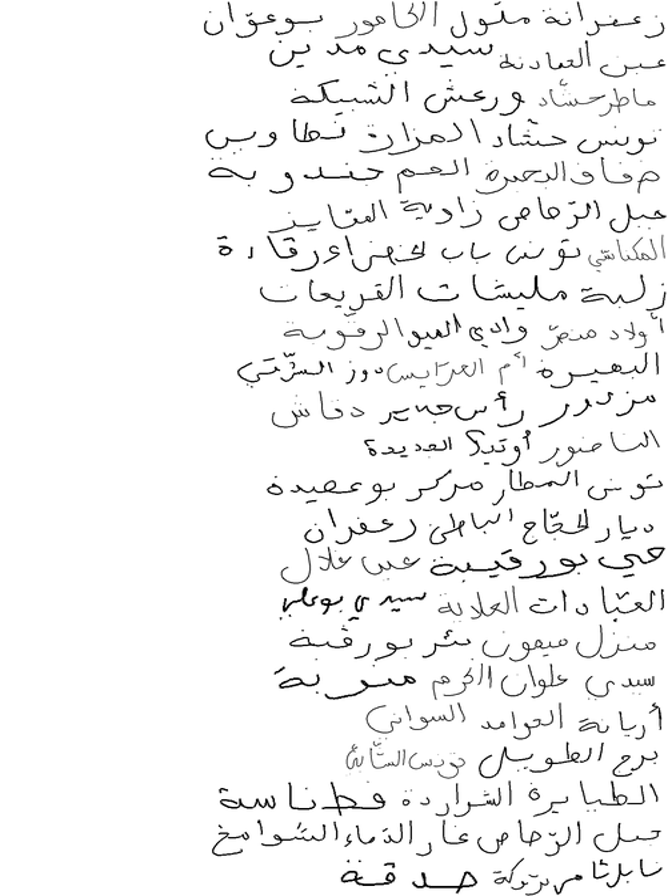 زعفرانة ملول الخامور بوعوان
عين العبادنة سيدي مدين
ماطر حشاد ورغش الشبيكة
تونس حشاد المزارة تطاوين
جندوبة
جبل الرصاص زاوية الفتايز
المكناسي تونس باب الخضراء رقادة
زلبة مليشات القريعات
أولاد منصر وادي الرقوبة
البهيرة أم العرايس دوز الشرقي
مزدور رأس جدير دقاش
الناضور أوتيكا الجديدة
تونس المطار مركز بوعصيدة
ديار الحجاج الباطن زعفران
حي بورقيبة عين غلال
العبادات العلاية سيدي بوعلي
منزل ميمون بئر بورقبة
سيدي علوان الكرم
أريانة العوامد السواني
برج الطويل تونس
الطبايرة الشراردة فطناسة
جبل الرصاص غار الدماء الشوامخ
نابل ثامر تركة صدقة